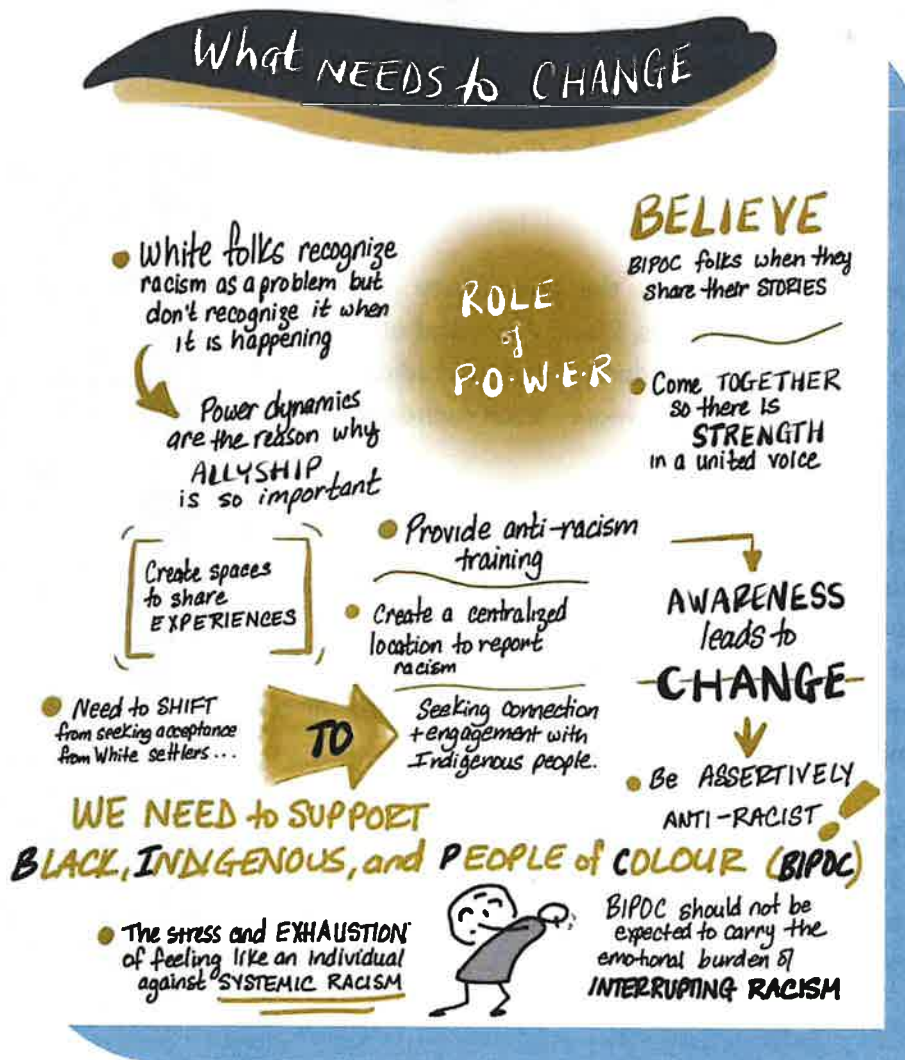 What NEEDS to CHANGE
White folks recognize
racism as a problem but
don't recognize it when
it is happening
Power dynamics
are the reason why
ALLYSHIP
is so important
ROLE
of
P.O.W.E.R
BELIEVE
BIPOC folks when they
share their STORIES
Come TOGETHER
so there is
STRENGTH
in a united voice
Create spaces
to share
EXPERIENCES
Provide anti-racism
training
Create a centralized
location to report
racism
AWARENESS
leads to
CHANGE
Need to SHIFT
from seeking acceptance
from White settlers...
TO
Seeking connection
+ engagement with
Indigenous people.
Be ASSERTIVELY
ANTI-RACIST!
WE NEED to SUPPORT
BLACK, INDIGENOUS, and PEOPLE of COLOUR (BIPOC)
The stress and EXHAUSTION
of feeling like an individual
against SYSTEMIC RACISM
BIPOC should not be
expected to carry the
emotional burden of
INTERRUPTING RACISM